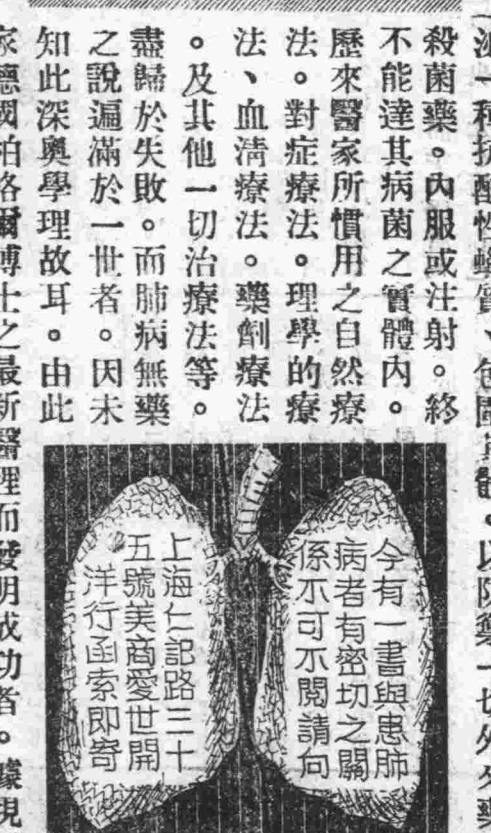 一種抗酸性蠟質、包圍其體。以防禦一切外來藥
殺菌藥。內服或注射。終
不能達其病菌之實體內。
歷來醫家所慣用之自然療
法。對症療法。理學的療
法、血清療法。藥劑療法
。及其他一切治療法等。
盡歸於失敗。而肺病無藥
之說遍滿於一世者。因未
知此深奧學理故耳。由此
家德國柏格爾博士之最新醫理而發明成功者。據現
今有一書與患肺
病者有密切之關
係不可不閱請向
上海仁記路三十
五號美商愛世開
洋行函索即寄